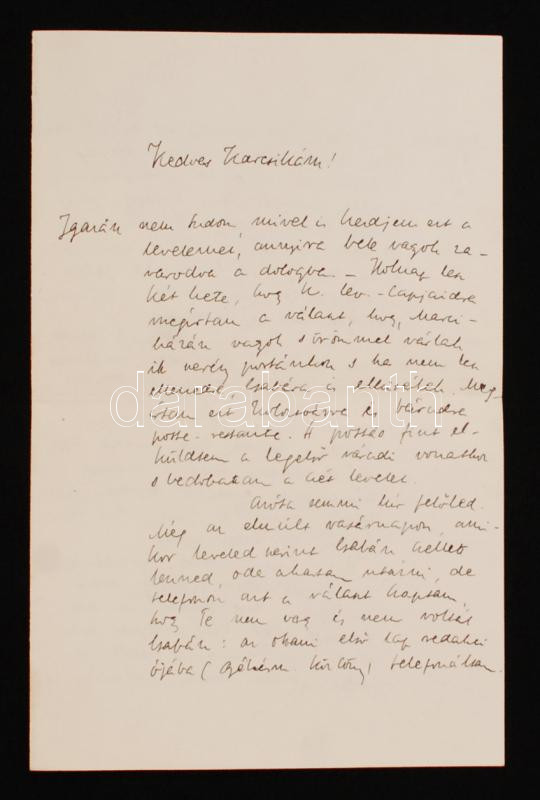 Kedves Karcsikám!
Igazán nem tudom, mivel is kezdjem ezt a
levelemet, annyira bele vagyok za-
varodva a dologba. – Holnap lesz
két hete, hogy K. lev.-lapjaidra
megírtam a választ, hogy Maros-
vagyok s örömmel várlak
szerény portánkon s ha nem
Csabára is ellátogatok. Meg-
írtam ezt Kolozsvárra és Váradra
poste-restante. A postás fiút el-
küldtem a legelső váradi vonathoz
s bedobattam a két levelet.
Azóta semmi hír felőled.
Még az elmúlt vasárnapon, ami-
kor leveled szerint Csabán kellett
lenned, oda akartam utazni, de
telefonon azt a választ kaptam,
hogy Te nem vagy és nem voltál
Csabán: az ottani első lap redakci-
ójába (Békésm. Közlöny) telefonáltam.
darabanth